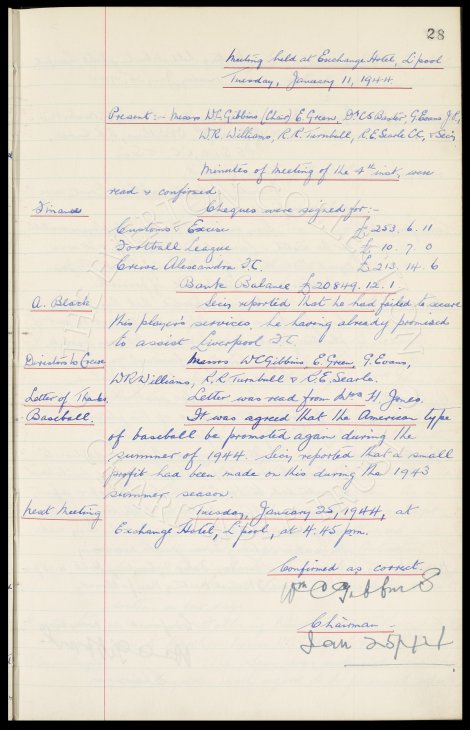 28
Meeting held at Exchange Hotel, L'pool
Tuesday, January 11, 1944
Present:- Messrs W.C. Gibbins (Chair) E. Green, Dr C.S. Baxter G. Evans J.P.,
W.R. Williams, R.R. Turnbull, R.E. Searle C.C., & Secy.
Minutes of Meeting of the 4th inst. were
read & confirmed.
Finance Cheques were signed for:-
Customs & Excise £253. 6. 11
Football League £10. 7. 0
Crewe Alexandra F.C. £213. 14. 6
Bank Balance £20849. 12. 1
A. Black Secy. reported that he had failed to secure
this player's services, he having already promised
to assist Liverpool F.C.
Directors to Crewe Messrs W.C. Gibbins, E. Green, G. Evans,
W.R. Williams, R.R. Turnbull & R.E. Searle.
Letter of Thanks. Letter was read from Mrs H. Jones.
Baseball. It was agreed that the American type
of baseball be promoted again during the
summer of 1944. Secy. reported that a small
profit had been made on this during the 1943
summer season.
Next Meeting Tuesday, January 25, 1944, at
Exchange Hotel, L'pool, at 4.45 pm.
Confirmed as correct.
Wm C Gibbins
Chairman
Jan 25/44